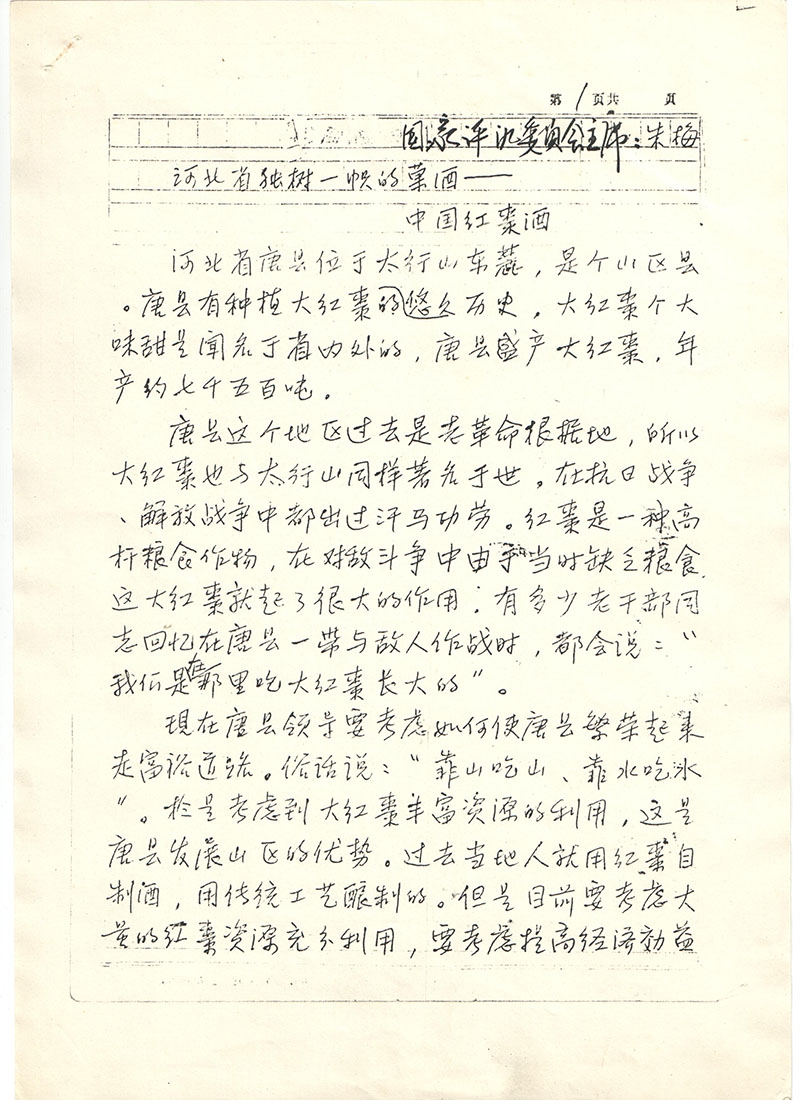 第 1 页共 页
国家评酒委员会主席：朱梅
河北省独树一帜的菓酒——
中国红棗酒
河北省唐县位于太行山东麓，是个山区县
。唐县有种植大红棗的悠久历史，大红棗个大
味甜是闻名于省内外的，唐县盛产大红棗，年
产约七千五百吨。
唐县这个地区过去是老革命根据地，所以
大红棗也与太行山同样著名于世。在抗日战争
、解放战争中都出过汗马功劳。红棗是一种高
杆粮食作物，在对敌斗争中由于当时缺乏粮食
这大红棗就起了很大的作用；有多少老干部同
志回忆在唐县一带与敌人作战时，都会说：“
我们是在那里吃大红棗长大的”。
现在唐县领导要考虑如何使唐县繁荣起来
走富裕道路。俗话说：“靠山吃山、靠水吃水
”。于是考虑到大红棗丰富资源的利用，这是
唐县发展山区的优势。过去当地人就用红棗自
制酒，用传统工艺酿制的。但是目前要考虑大
量的红棗资源充分利用，要考虑提高经济效益